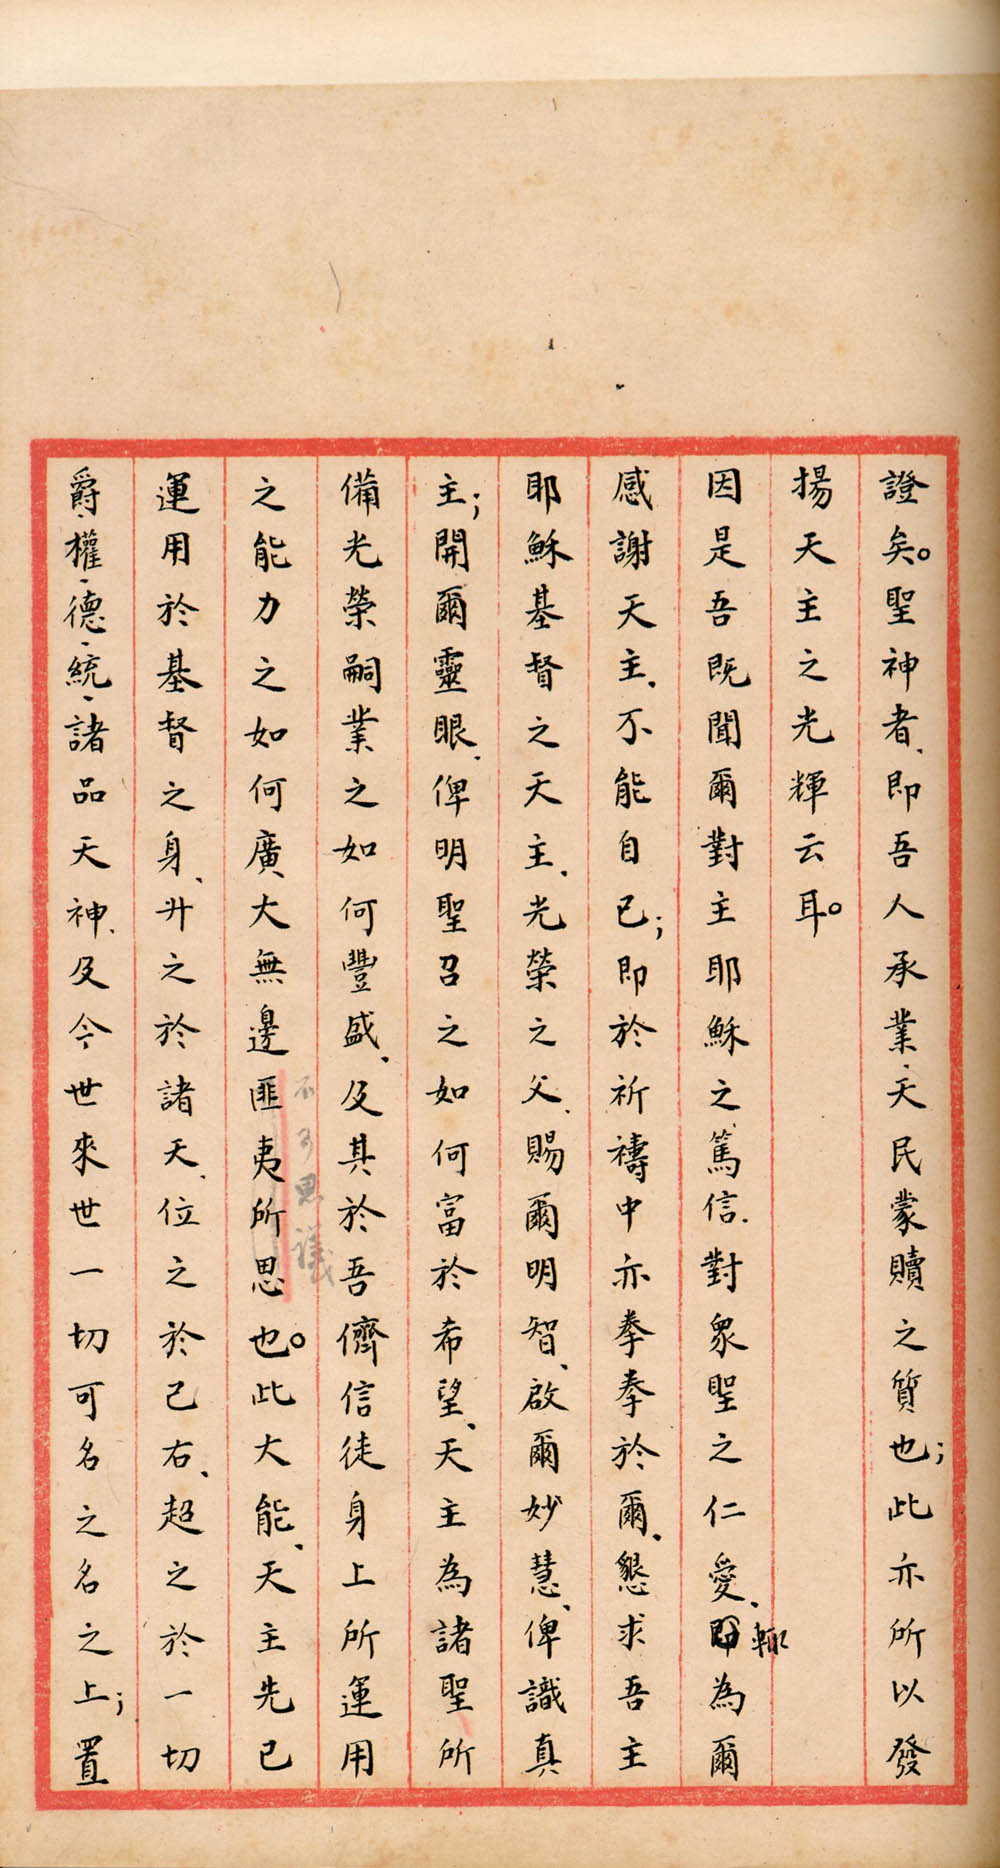 證矣。聖神者、即吾人承業、天民蒙贖之質也；此亦所以發
揚天主之光輝云耳。
因是吾既聞爾對主耶穌之篤信、對眾聖之仁愛、即為爾
輒
感謝天主、不能自已；即於祈禱中亦拳拳於爾、懇求吾主
耶穌基督之天主、光榮之父、賜爾明智、啟爾妙慧、俾識真
主；開爾靈眼、俾明聖召之如何富於希望、天主為諸聖所
備光榮嗣業之如何豐盛、及其於吾儕信徒身上所運用
之能力之如何廣大無邊匪夷所思也。此大能、天主先已
不可思議
運用於基督之身、升之於諸天、位之於己右、超之於一切
爵、權、德、統、諸品天神、及今世來世一切可名之名之上；置